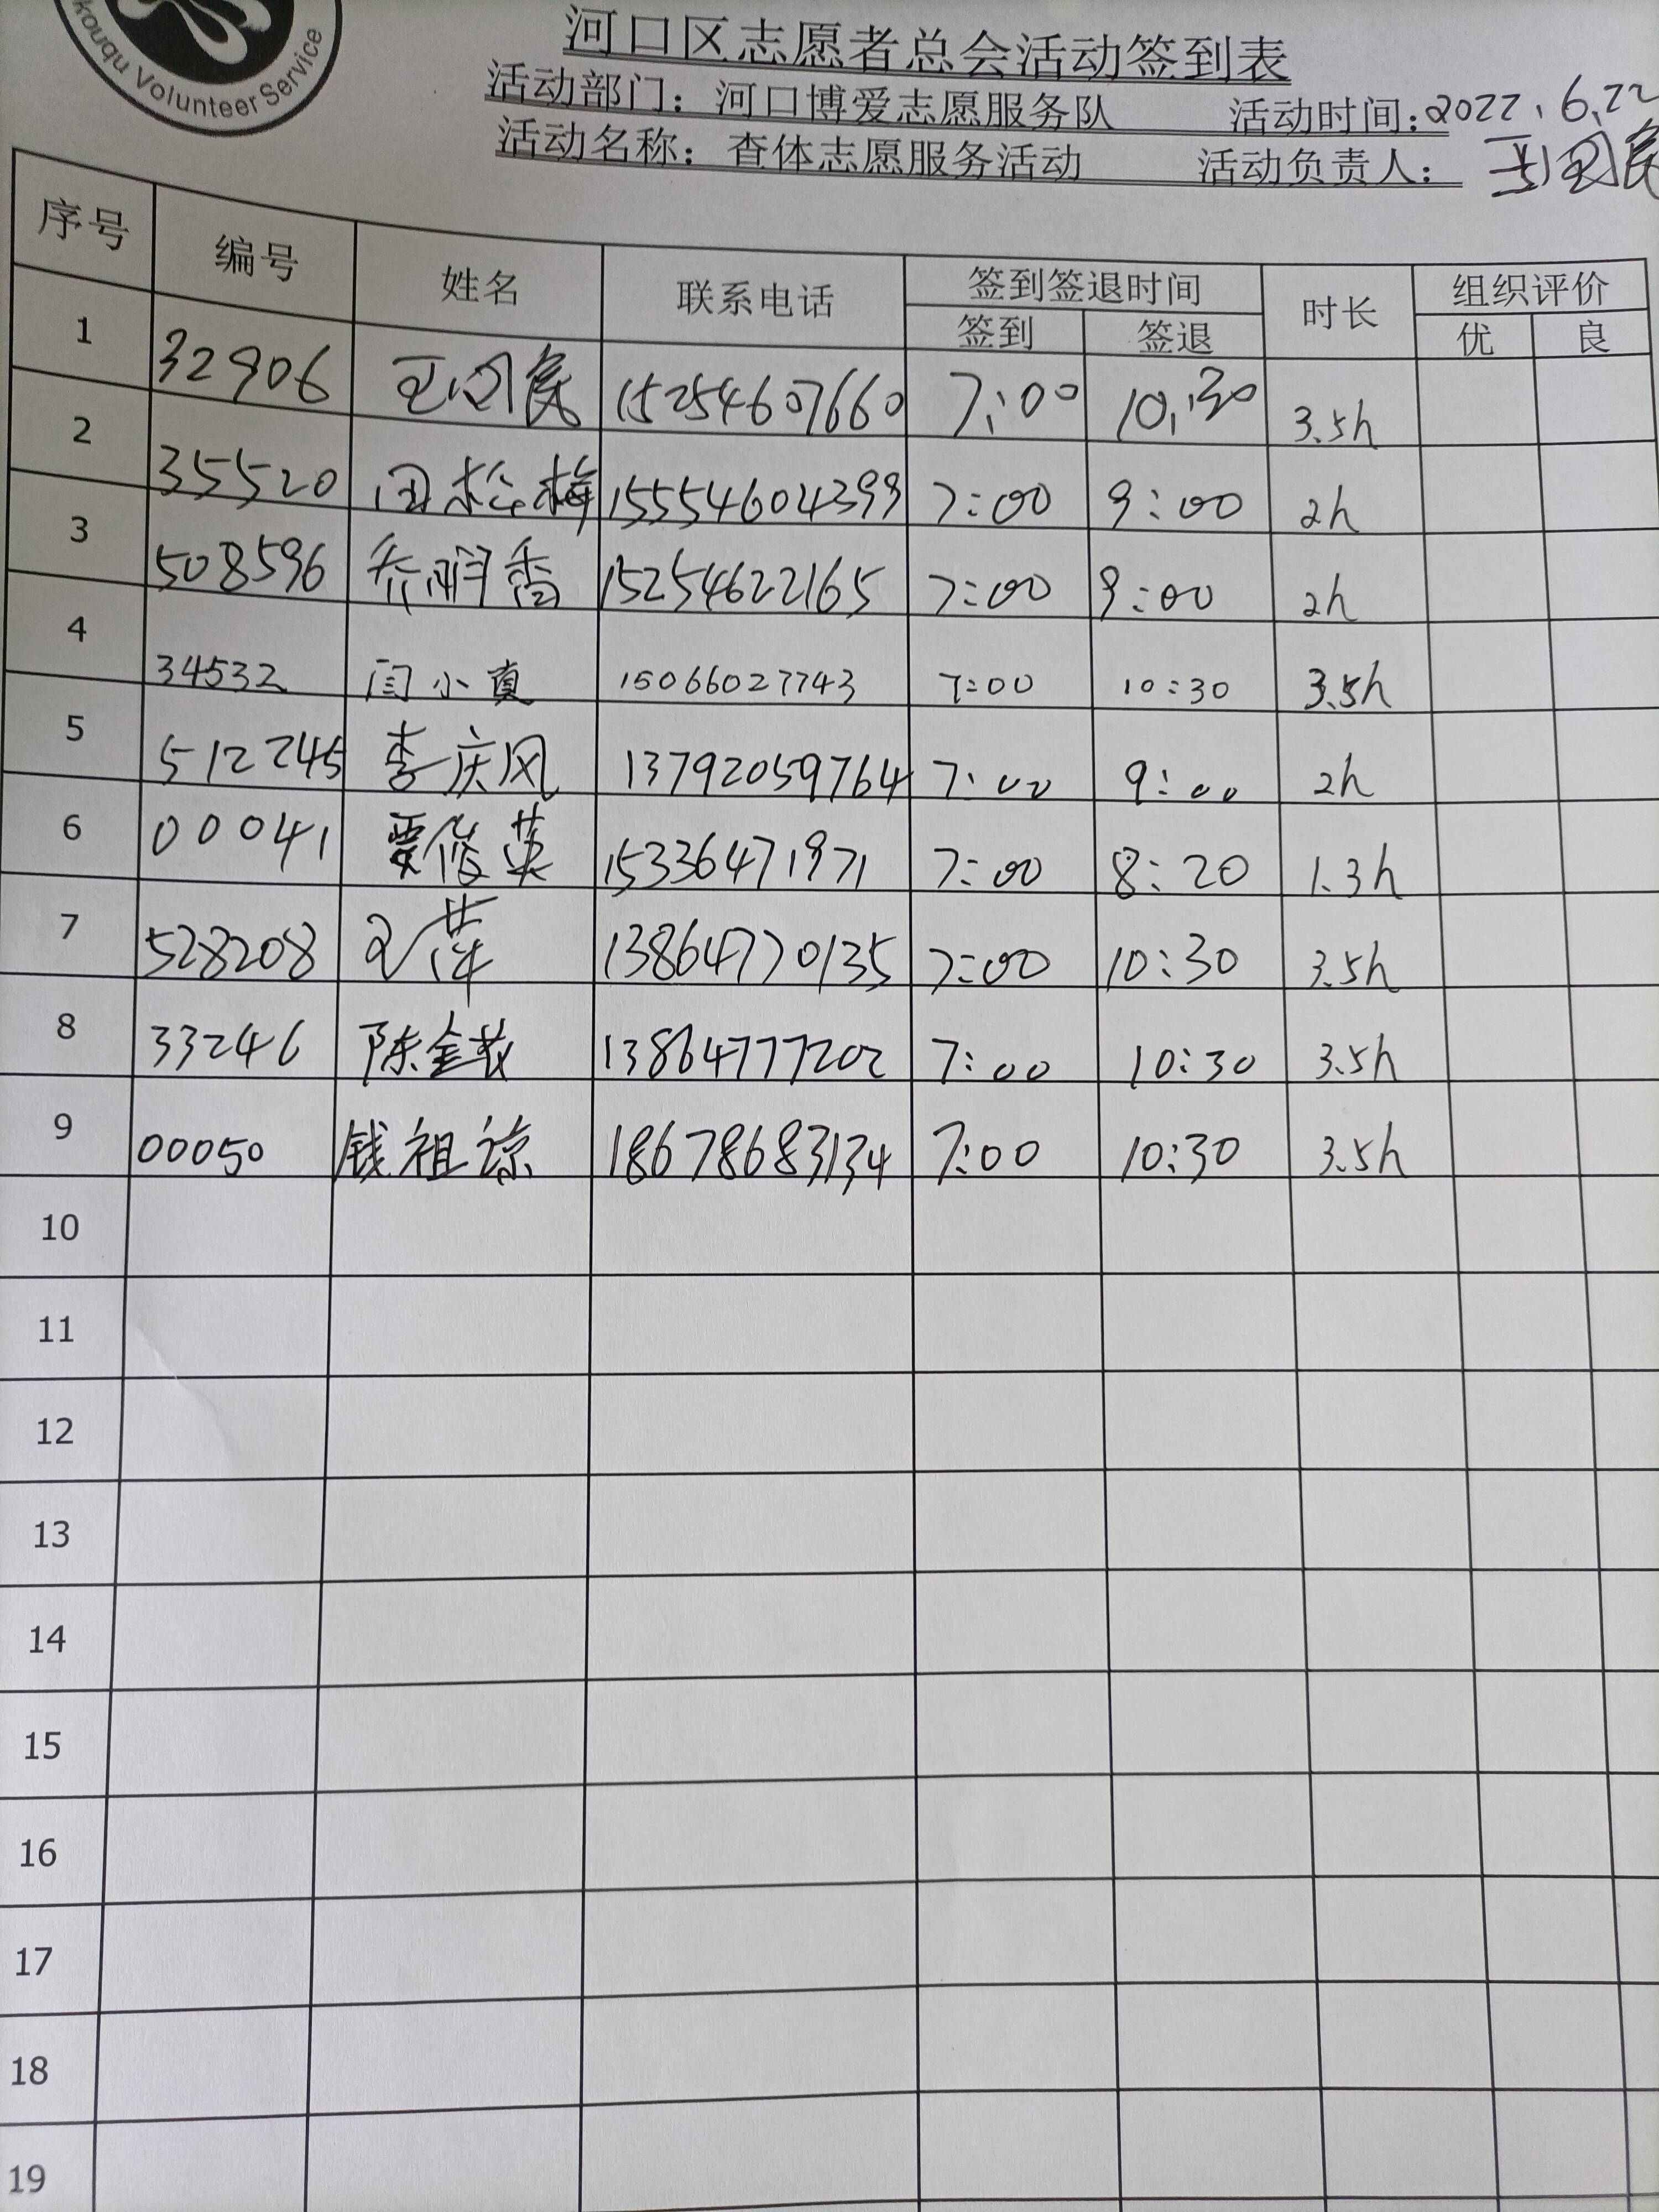 kouqu Volunteer Service
河口区志愿者总会活动签到表
活动部门：河口博爱志愿服务队 活动时间：2022.6.22
活动名称：查体志愿服务活动 活动负责人：
序号 编号 姓名 联系电话 签到签退时间 时长 组织评价
签到 签退 优 良
1 32906 15254607660 7:00 10:30 3.5h
2 35520 15554604399 7:00 9:00 2h
3 508596 乔丽香 15254622165 7:00 9:00 2h
4 34532 闫小真 15066027743 7:00 10:30 3.5h
5 512245 李庆风 13792059764 7:00 9:00 2h
6 00041 贾俊英 15336471971 7:00 8:20 1.3h
7 528208 王萍 13864770135 7:00 10:30 3.5h
8 33246 陈金 13864777202 7:00 10:30 3.5h
9 00050 钱祖谅 18678683134 7:00 10:30 3.5h
10
11
12
13
14
15
16
17
18
19